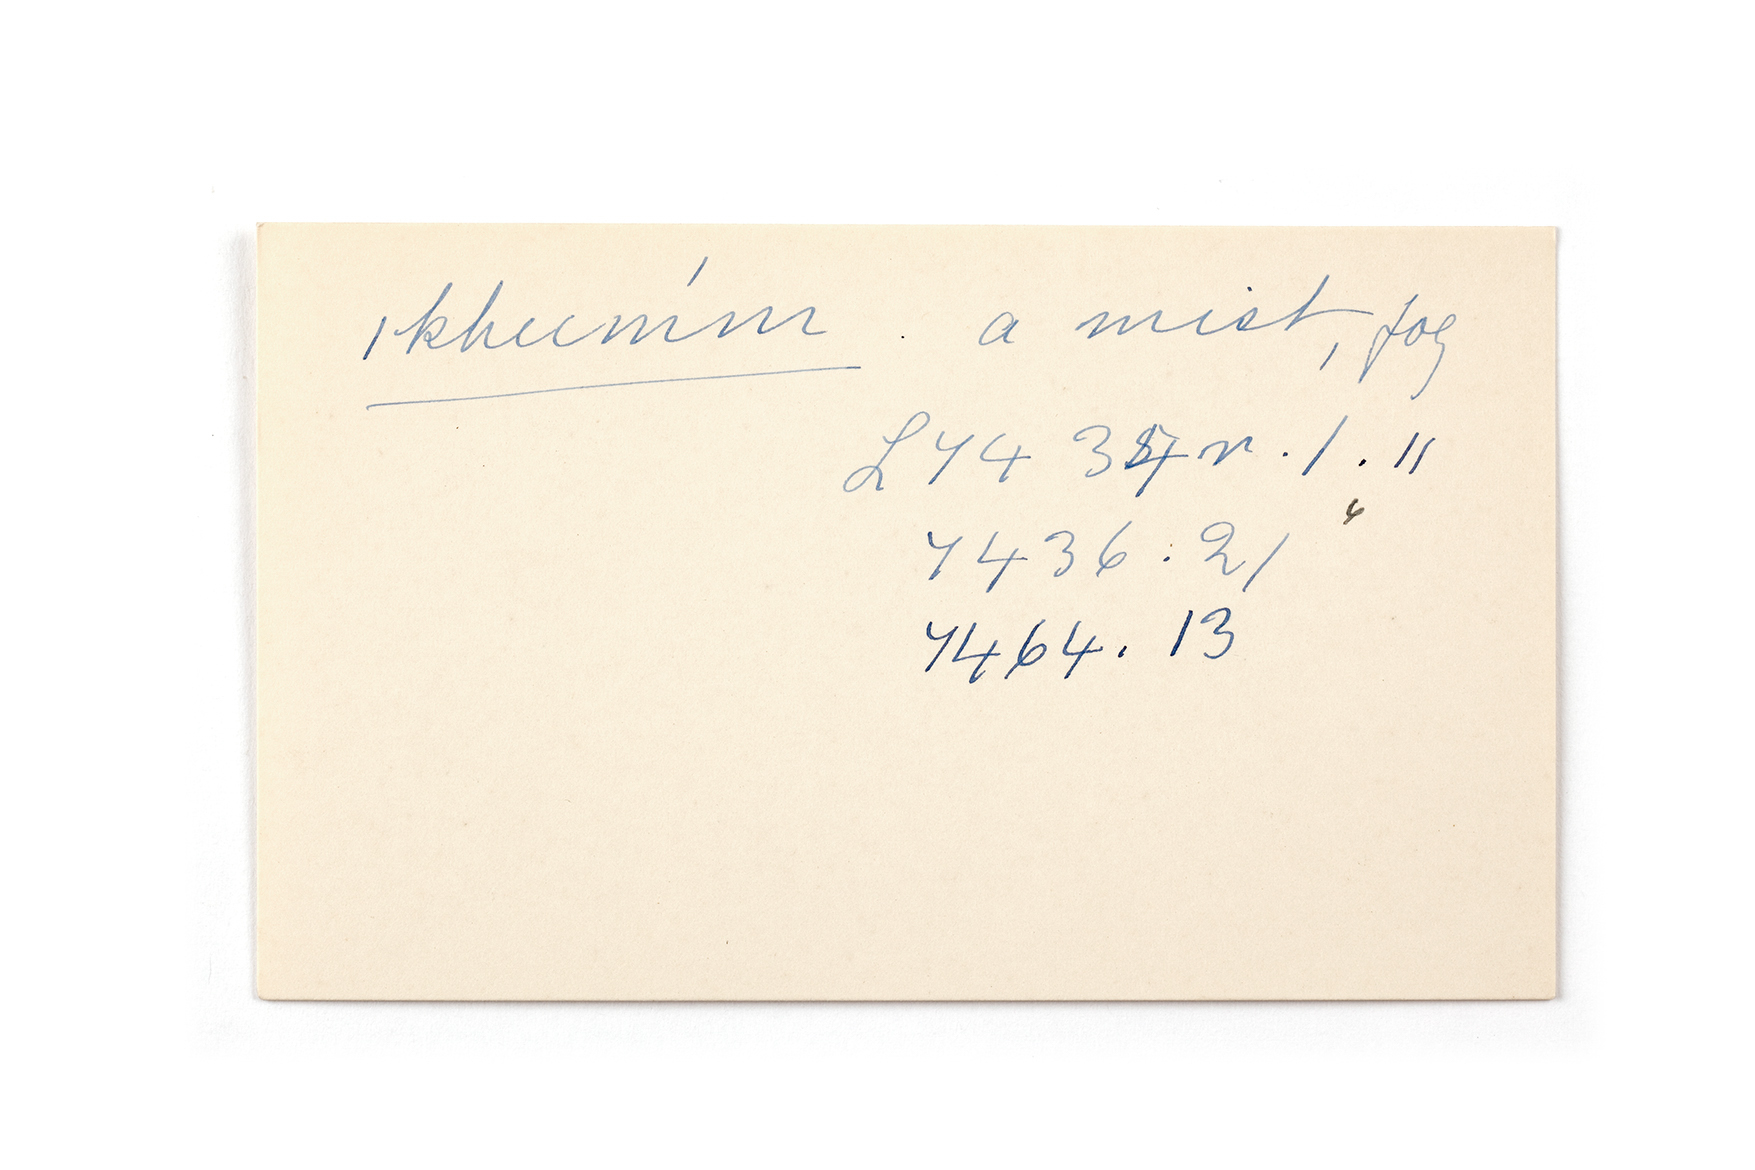 ǀkhuum'm . a mist, fog
L 74 34 v . 1 . 11
7436 . 21
7464 . 13